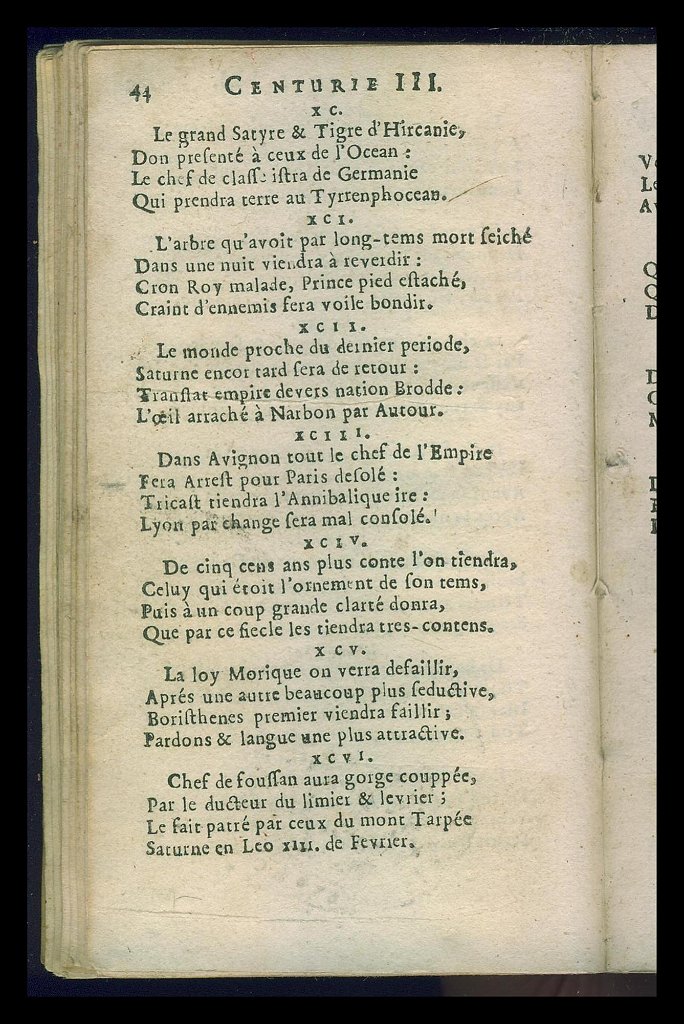 44 CENTURIE III.
XC.
Le grand Satyre & Tigre d'Hircanie,
Don preſenté à ceux de l'Ocean :
Le chef de claſſe iſtra de Germanie
Qui prendra terre au Tyrrenphocean.
XCI.
L'arbre qu'avoit par long-tems mort ſeiché
Dans une nuit viendra à reverdir :
Cron Roy malade, Prince pied eſtaché,
Craint d'ennemis fera voile bondir.
XCII.
Le monde proche du dernier periode,
Saturne encor tard ſera de retour :
Tranſlat empire devers nation Brodde :
L'œil arraché à Narbon par Autour.
XCIII.
Dans Avignon tout le chef de l'Empire
Fera Arreſt pour Paris deſolé :
Tricaſt tiendra l'Annibalique ire :
Lyon par change ſera mal conſolé.
XCIV.
De cinq cens ans plus conte l'on tiendra,
Celuy qui étoit l'ornement de ſon tems,
Puis à un coup grande clarté donra,
Que par ce ſiecle les tiendra tres-contens.
XCV.
La loy Morique on verra defaillir,
Aprés une autre beaucoup plus ſeductive,
Boriſthenes premier viendra faillir ;
Pardons & langue une plus attractive.
XCVI.
Chef de fouſſan aura gorge couppée,
Par le ducteur du limier & levrier ;
Le fait patré par ceux du mont Tarpée
Saturne en Leo XIII. de Fevrier.